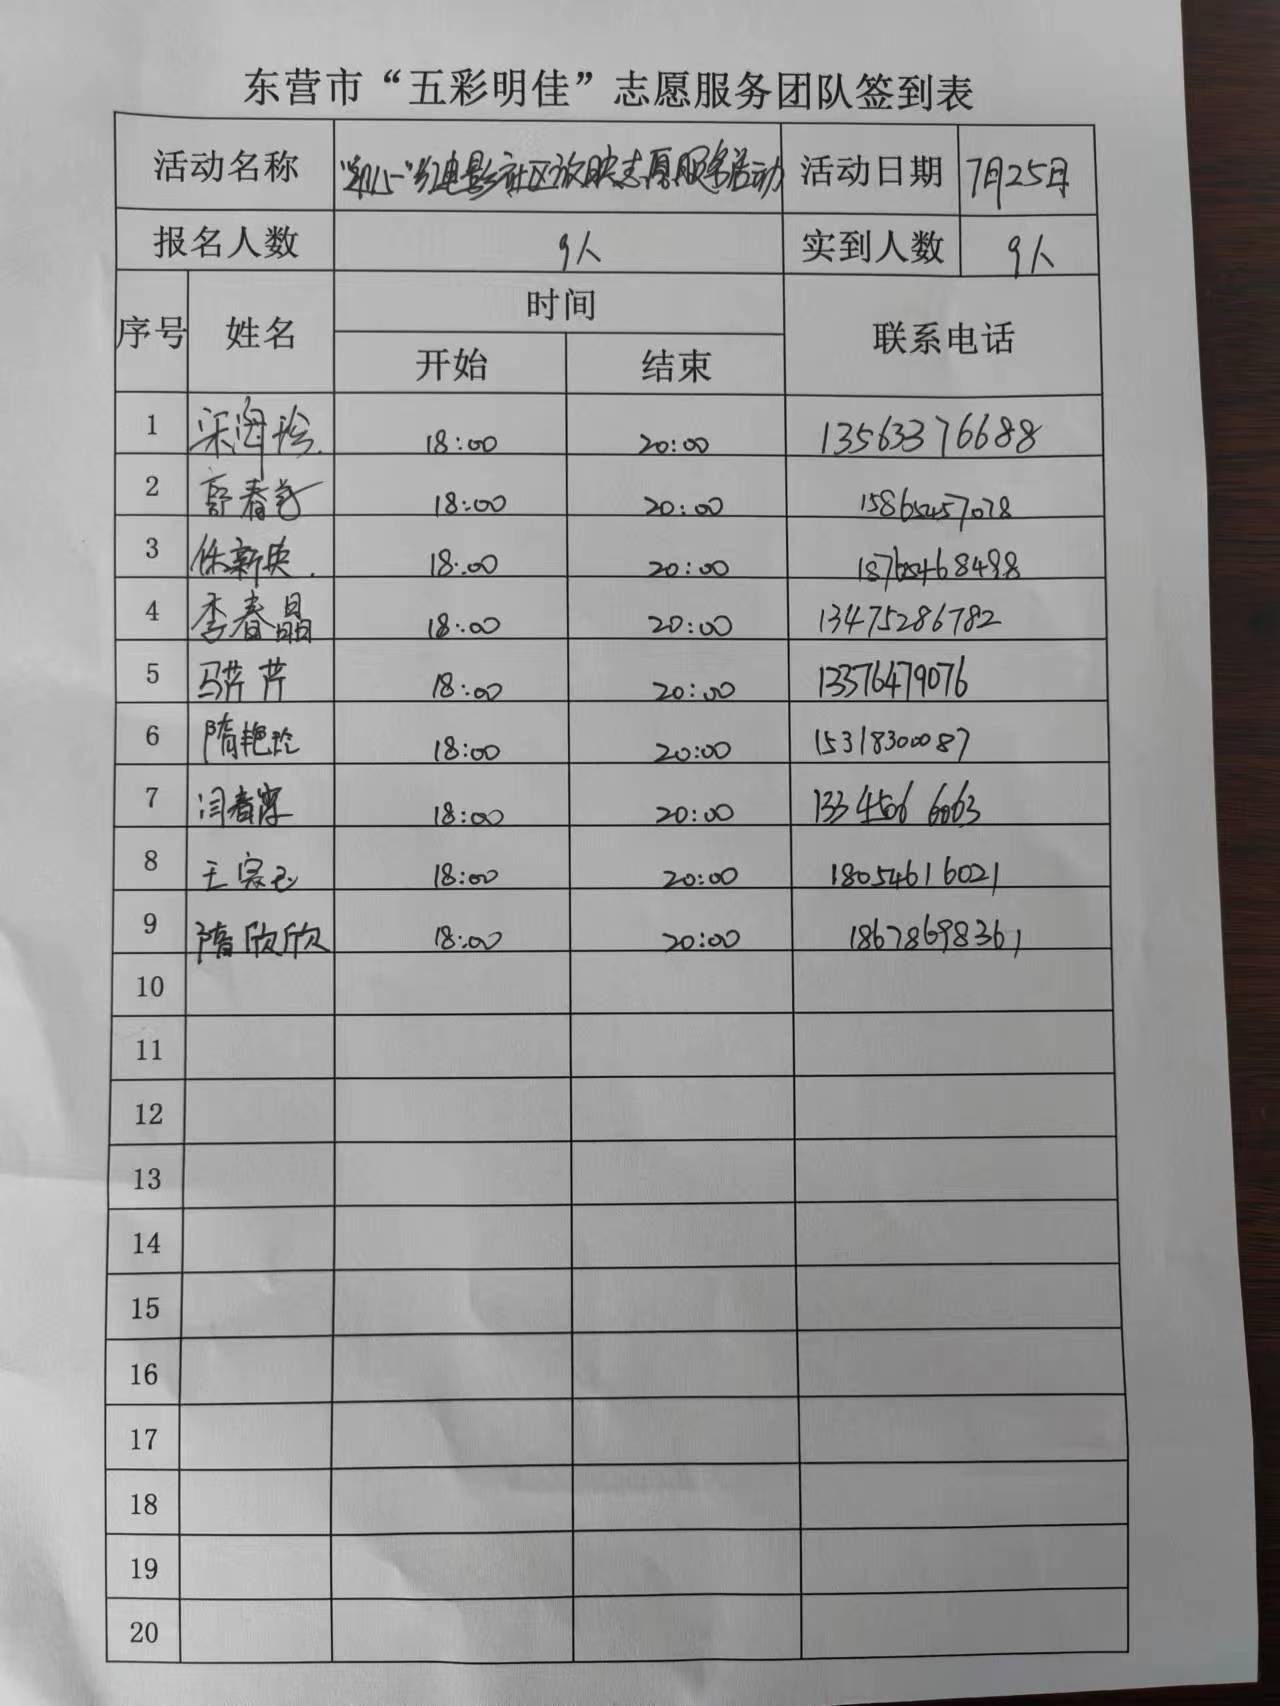 东营市“五彩明佳”志愿服务团队签到表
活动名称 电影社区放映志愿服务活动 活动日期 7月25日
报名人数 9人 实到人数 9人
序号 姓名 时间 联系电话
开始 结束
1 18:00 20:00 13563376688
2 18:00 20:00
3 18:00 20:00 18765468498
4 李春晶 18:00 20:00 13475286782
5 马芹芹 18:00 20:00 13376479076
6 隋艳玲 18:00 20:00 15318300087
7 闫春霞 18:00 20:00
8 18:00 20:00 18054616021
9 隋欣欣 18:00 20:00 18678698361
10
11
12
13
14
15
16
17
18
19
20